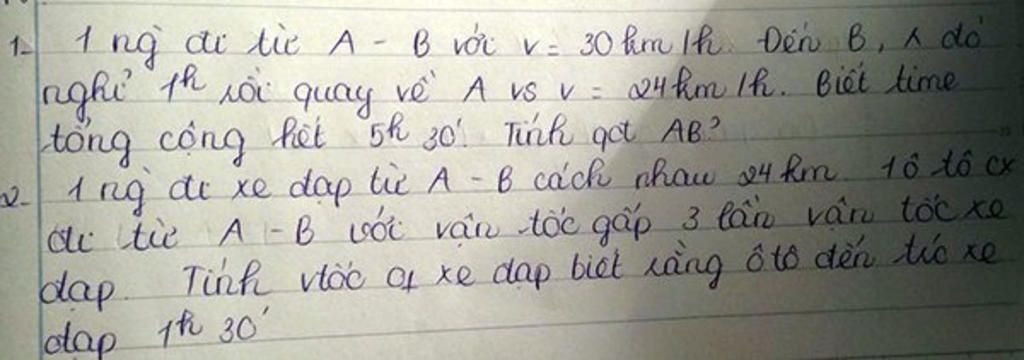 1- 1 ng đi từ A - B với v = 30 km/h. Đến B, ^ đó
nghỉ 1h rồi quay về A vs v = 24 km/h. Biết time
tổng cộng hết 5h 30'. Tính qđt AB?
2- 1 ng đi xe đạp từ A - B cách nhau 24 km. 1 ô tô cx
đi từ A - B với vận tốc gấp 3 lần vận tốc xe
đạp. Tính vtốc of xe đạp biết rằng ô tô đến trc xe
đạp 1h 30'